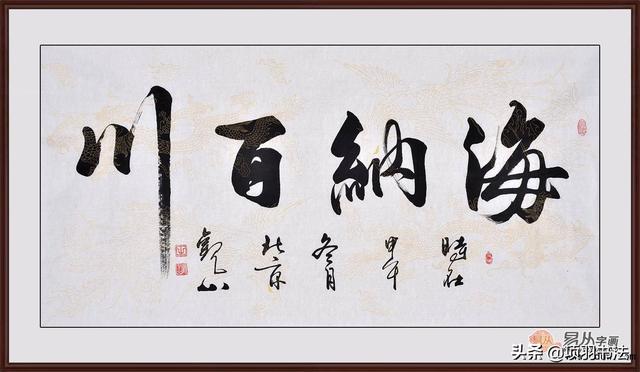 海納百川
時在
甲午
冬月
北京
觀山
易从字画
头条 @项羽书法